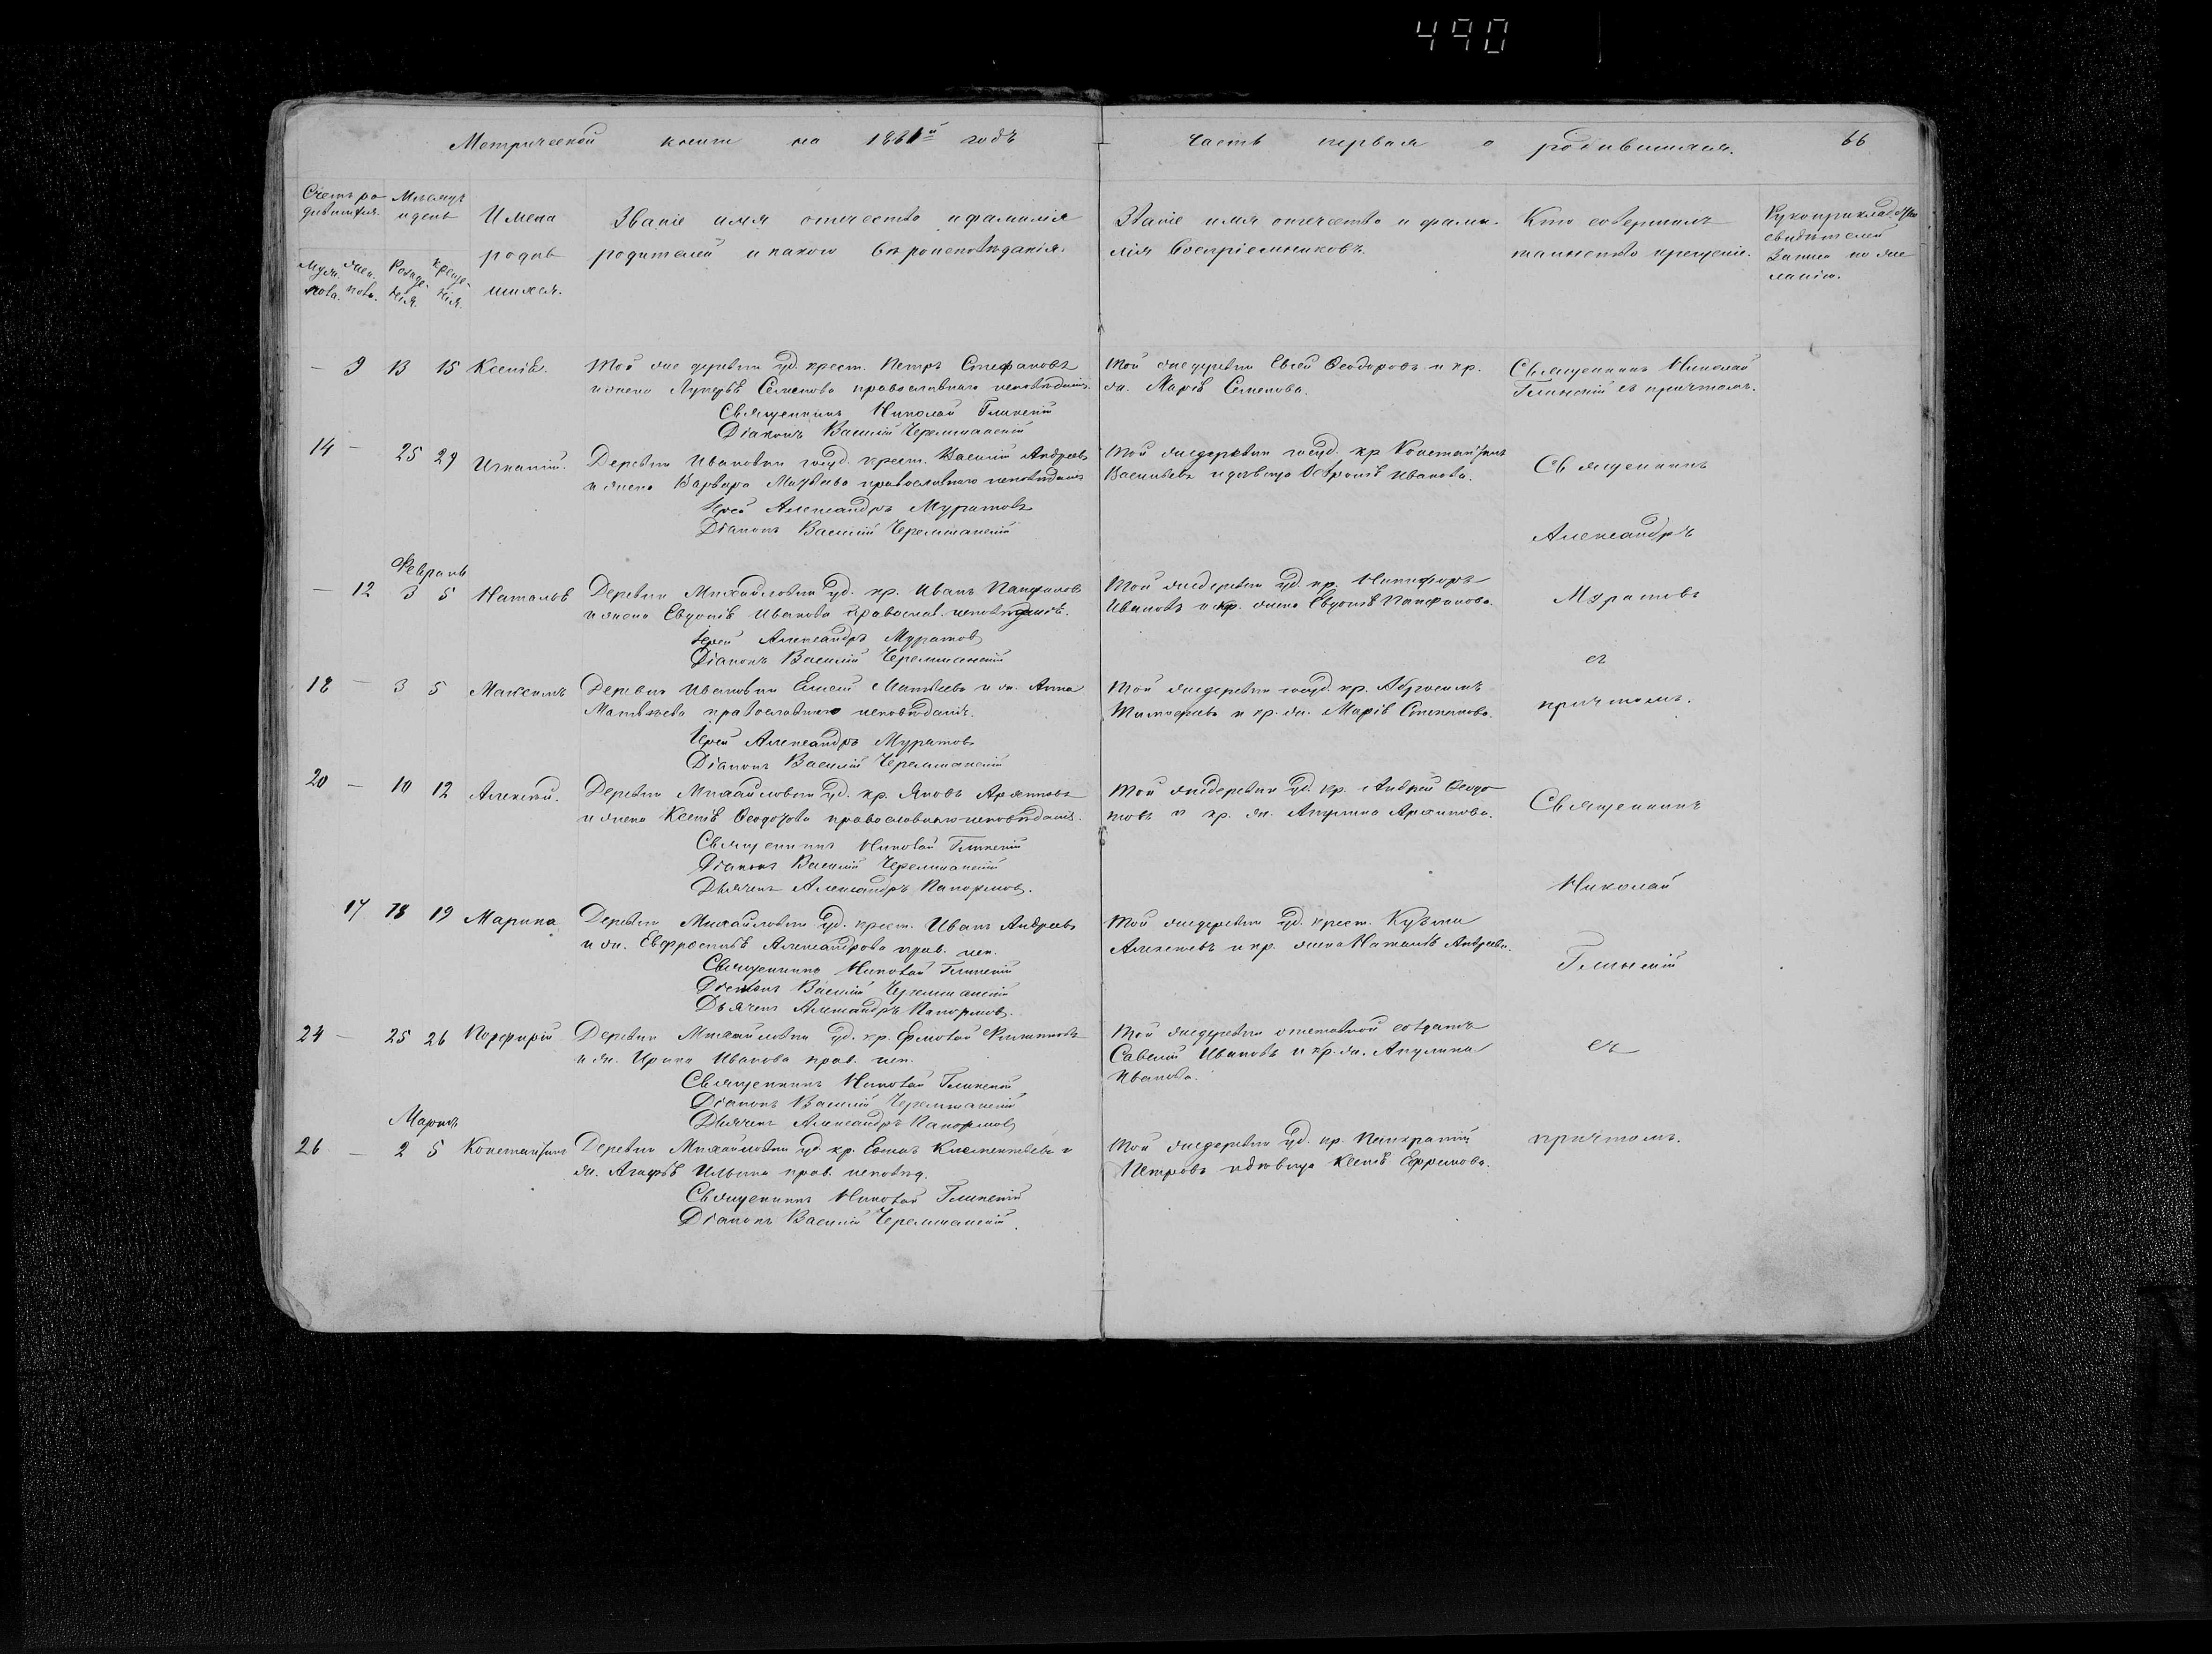 490
Метрической книги на 1861й годъ
часть первая о родившихся.
66
Счетъ ро
дившихся.
Мѣсяцъ
и день
Имена
родив
шихся.
Званіе имя отчество и фамилія
родителей и какого вѣроисповѣданія.
Званіе имя отчество и фами-
лія воспріемниковъ.
Кто совершалъ
таинство крещенія.
Рукоприкладство
свидѣтелей
записи по же
ланію.
Муж. пола.
Жен. пола.
Рожде-
нія.
Креще-
нія.
— 9 13 15 Ксенія.
Той же деревни уд. крест. Петръ Стефановъ
и жена Лукерья Семенова православнаго исповѣданія.
Священникъ Николай Глинскій
Діаконъ Василій Черемшанскій
Той же деревни Евсей Ѳеодоровъ и кр.
ж. Марія Семенова.
Священникъ Николай
Глинскій съ причтомъ.
14 — 25 29 Игнатій.
Деревни Ивановки госуд. крест. Василій Андреевъ
и жена Варвара Матвѣева православнаго исповѣданія
Іерей Александръ Муратовъ
Діаконъ Василій Черемшанскій
Той же деревни госуд. кр. Константинъ
Васильевъ и дѣвица Ѳевронія Иванова.
Священникъ
Александръ
Муратовъ
съ
причтомъ.
Февраль
— 12 3 5 Наталья
Деревни Михайловки уд. кр. Иванъ Панфиловъ
и жена Евдокія Иванова православ. исповѣданія.
Іерей Александръ Муратовъ
Діаконъ Василій Черемшанскій
Той же деревни уд. кр. Никифоръ
Ивановъ и кр. жена Евдокія Панфилова.
18 — 3 5 Максимъ
Деревни Ивановки Елисей Матвѣевъ и ж. Анна
Матвѣева православнаго исповѣданія.
Іерей Александръ Муратовъ
Діаконъ Василій Черемшанскій
Той же деревни госуд. кр. Абросимъ
Тимофеевъ и кр. ж. Марія Степанова.
20 — 10 12 Алексѣй.
Деревни Михайловки уд. кр. Яковъ Архиповъ
и жена Ксенія Ѳеодотова православнаго исповѣданія.
Священникъ Николай Глинскій
Діаконъ Василій Черемшанскій
Дьячекъ Александръ Папормовъ.
Той же деревни уд. кр. Андрей Ѳеодо
товъ и кр. ж. Акулина Архипова.
Священникъ
Николай
Глинскій
съ
причтомъ.
17 18 19 Марина
Деревни Михайловки уд. крест. Иванъ Андреевъ
и ж. Евфросинья Александрова прав. исп.
Священникъ Николай Глинскій
Діаконъ Василій Черемшанскій
Дьячекъ Александръ Папормовъ.
Той же деревни уд. крест. Кузьма
Алексѣевъ и кр. жена Наталія Андреева.
24 — 25 26 Порфирій
Деревни Михайловки уд. кр. Ермолай Филиповъ
и ж. Ирина Иванова прав. исп.
Священникъ Николай Глинскій
Діаконъ Василій Черемшанскій
Дьячекъ Александръ Папормовъ
Той же деревни отставной солдатъ
Савелій Ивановъ и кр. ж. Акулина
Иванова.
Мартъ
26 — 2 5 Константинъ
Деревни Михайловки уд. кр. Климентьевъ и
ж. Агафья Ильина прав. исповѣд.
Священникъ Николай Глинскій
Діаконъ Василій Черемшанскій.
Той же деревни уд. кр. Панкратій
Петровъ и дѣвица Ксенія Ефремова.